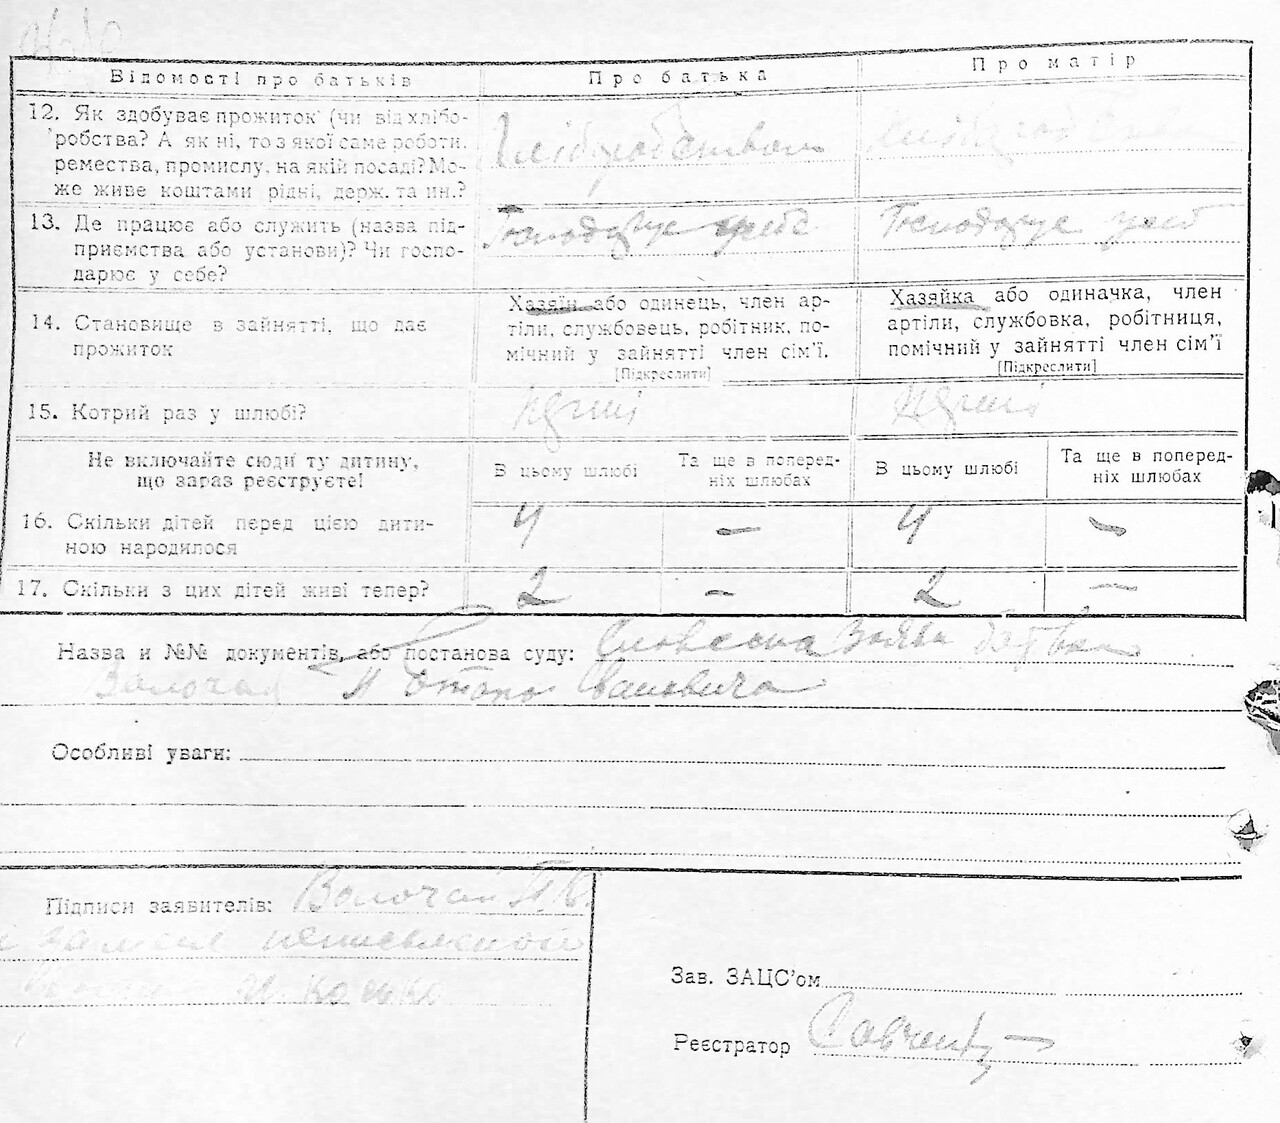 Відомості про батьків
Про батька
Про матір
12. Як здобуває прожиток (чи від хлібо-
робства? А як ні, то з якої саме роботи,
ремества, промислу, на якій посаді? Мо-
же живе коштами рідні, держ. та ин.?
Хліборобством
13. Де працює або служить (назва під-
приємства або установи)? Чи госпо-
дарює у себе?
Господарує у себе
Господарує у себе
14. Становище в зайнятті, що дає
прожиток
Хазяїн або одинець, член ар-
тіли, службовець, робітник, по-
мічний у зайнятті член сім'ї.
[Підкреслити]
Хазяйка або одиначка, член
артіли, службовка, робітниця,
помічний у зайнятті член сім'ї
[Підкреслити]
15. Котрий раз у шлюбі?
Не включайте сюди ту дитину,
що зараз реєструєте!
В цьому шлюбі
Та ще в поперед-
ніх шлюбах
В цьому шлюбі
Та ще в поперед-
ніх шлюбах
16. Скільки дітей перед цією дити-
ною народилося
4 — 4 —
17. Скільки з цих дітей живі тепер?
2 — 2 —
Назва и №№ документів, або постанова суду: Словесна
Івановича
Особливі уваги:
Підписи заявителів: Волочай
Зав. ЗАЦС'ом
Реєстратор Савченко